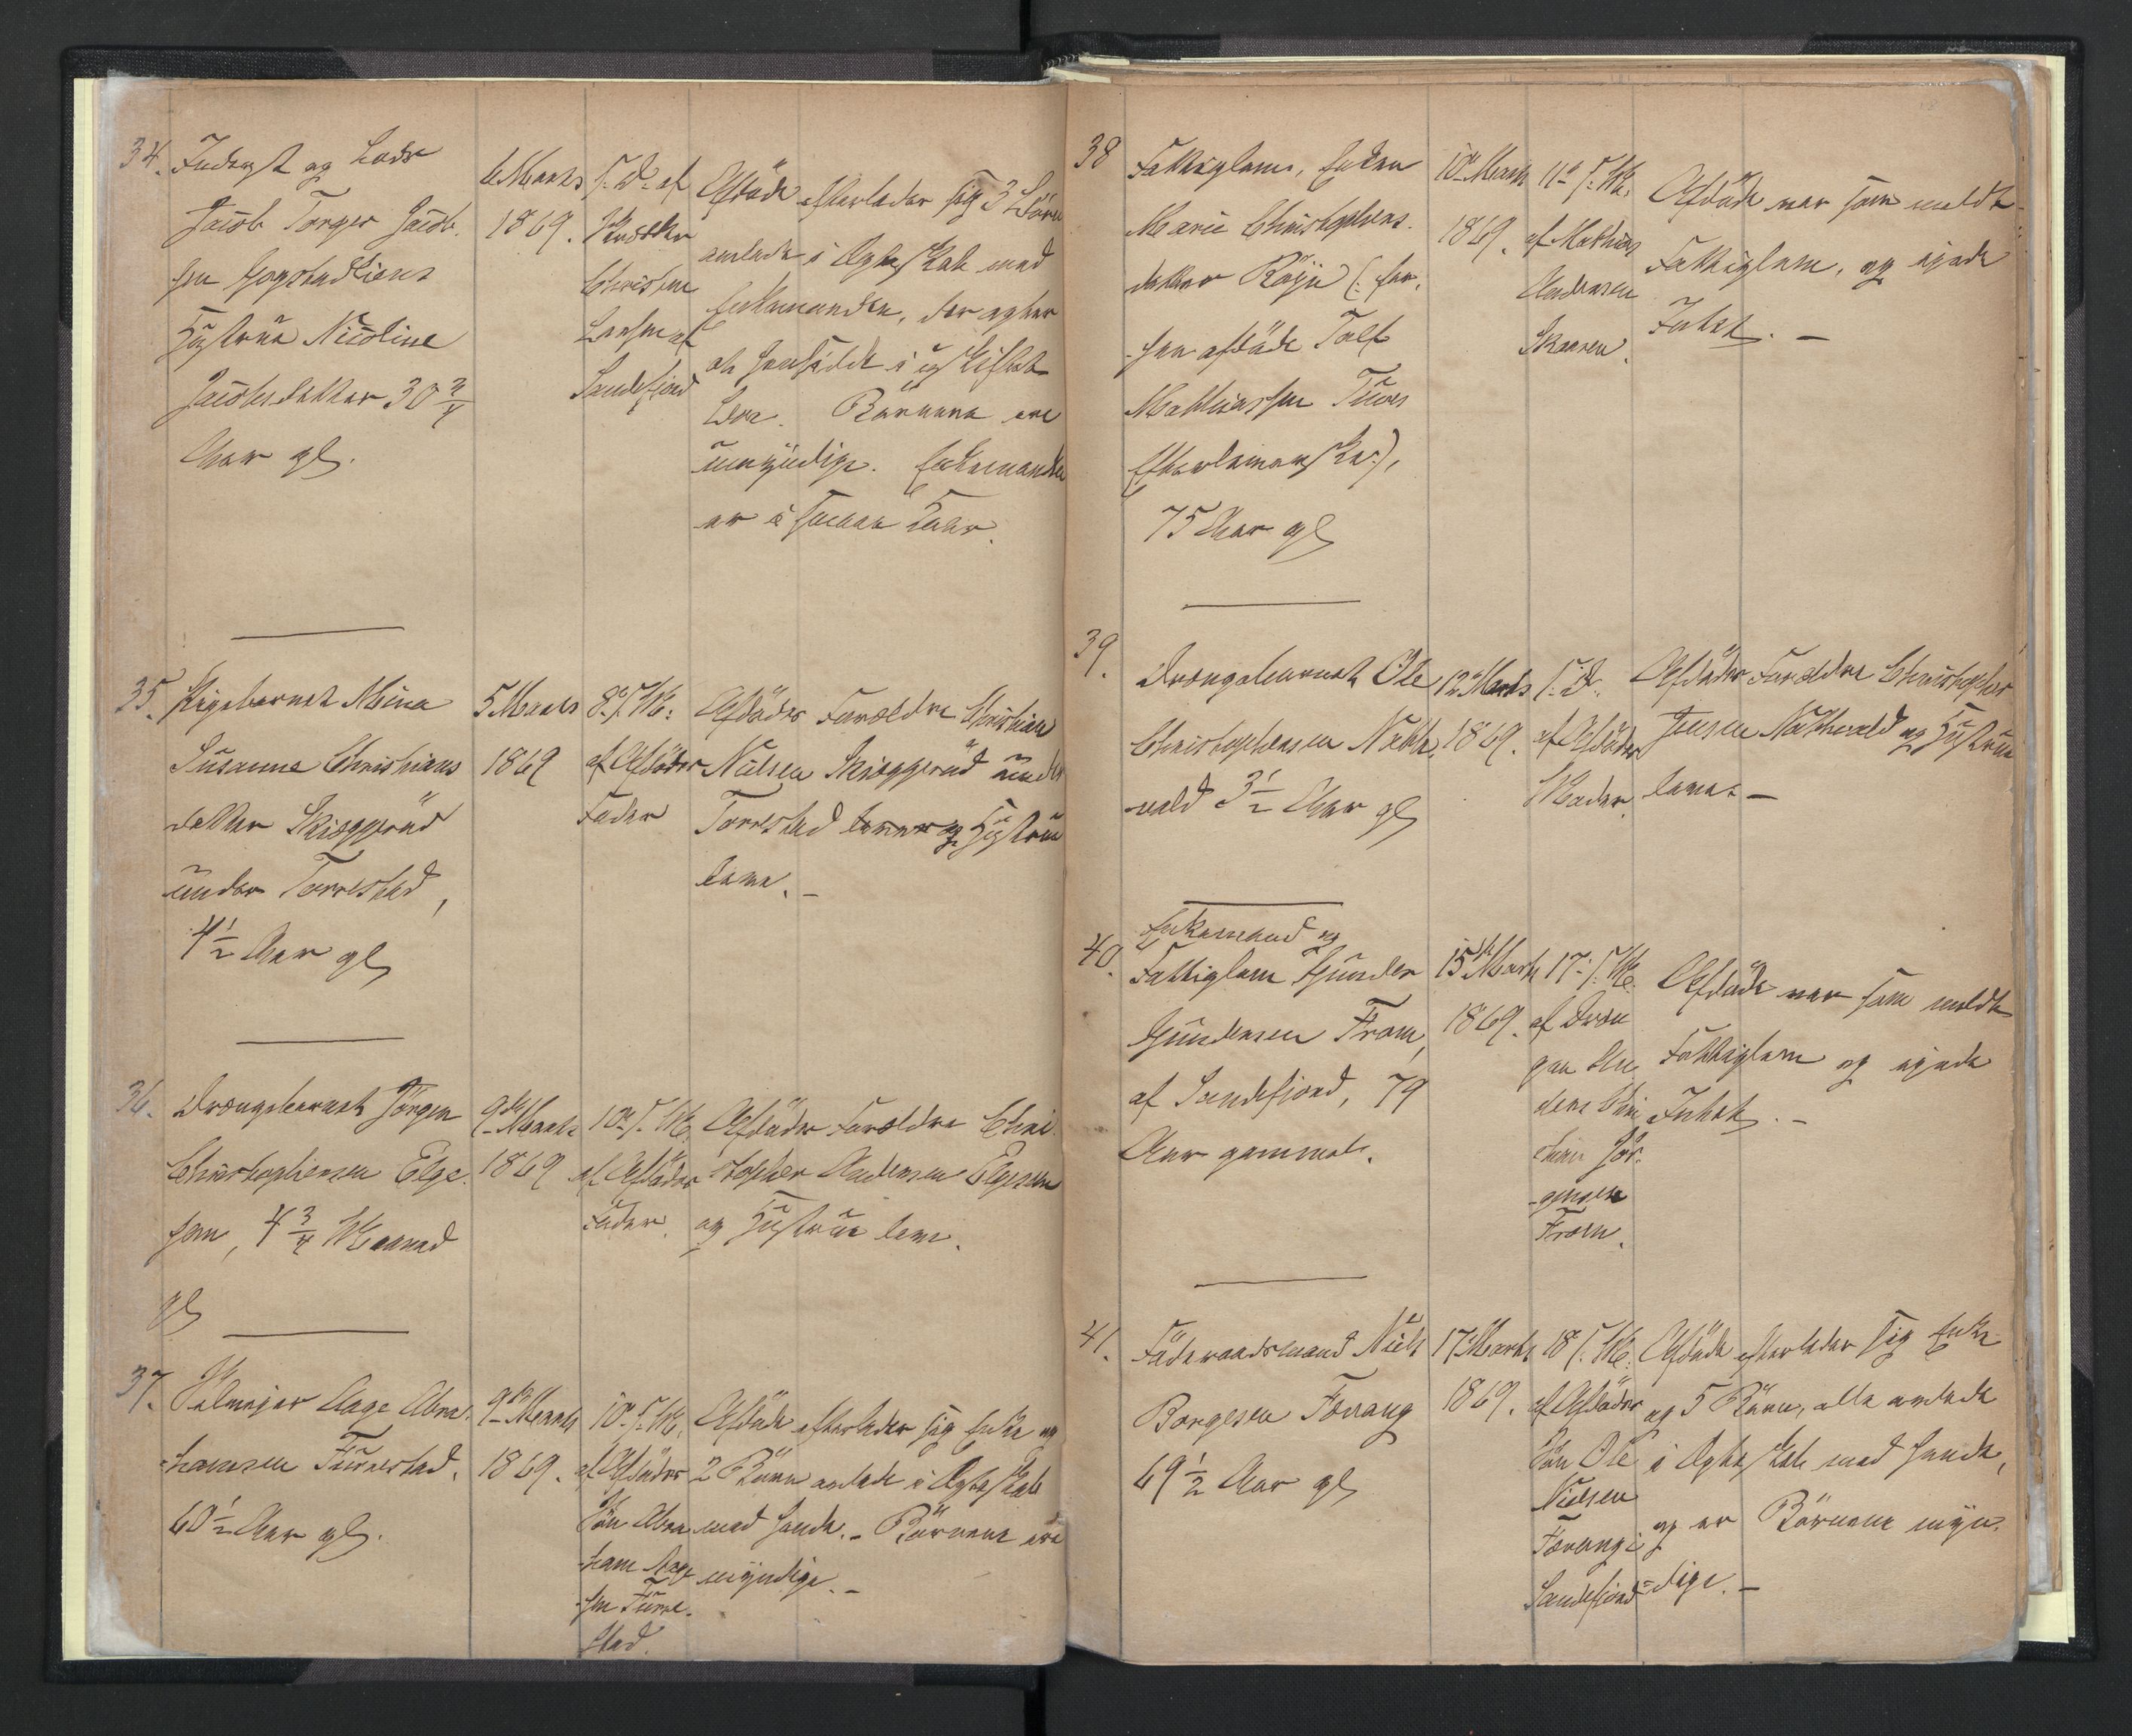 34. Inderst og Lods
Jacob Torger Jacob-
sen Gogstadtiens
Hustrue Nicoline
Jacobsdatter 30 3/4
Aar gl.
6 Marts
1869.
s. D. af
Christen
Larsen af
Sandefjord
Afdøde efterlader sig 3 Børn
avlede i Ægteskab med
Enkemanden, der agter
at hensidde i uskiftet
Boe. Børnene ere
umyndige. Enkemanden
er i samme Kaar.
35. Pigebarnet Mina
Susanne Christians
datter Skiæggerød
under Torrestad,
4 1/2 Aar gl
5 Marts
1869
8de s. M.
af Afdødes
Fader
Afdødes Forældre Christian
Nilsen Skiæggerød under
Torrestad og Hustrue
leve. –
36. Drengebarnet Jörgen
Christophersen Elge-
sem, 4 3/4 Maaned
gl
9de Marts
1869
10de s. M.
af Afdødes
Fader.
Afdødes Forældre Chri-
stopher Andersen Elgesem
og Hustrue leve.
37. Selveier Aage Abra-
hamsen Furrestad.
60 1/2 Aar gl.
9de Marts
1869.
10de s. M.
af Afdødes
Søn Abra
ham Aage
sen Furre-
stad.
Afdøde efterlader sig Enke og
2 Børn avlede i Ægteskab
med hende. – Børnene ere
myndige. –
38 Fattiglem, Enken
Marie Christophers-
datter Röyn (: for-
hen afdøde Tolf
Mathiassen Tüves
Efterleverske:),
75 Aar gl
10de Marts
1869.
11te s. M.
af Mathias
Andersen
Skaaren.
Afdøde var som meldt
Fattiglem, og ejede
Intet. –
39. Drengebarnet Ole
Christophersen Natth-
vald 3 1/2 Aar gl
12te Marts
1869.
s. D.
af Afdødes
Moder.
Afdødes Forældre Christopher
Jensen Natthvald og Hustrue
leve. –
40. Enkemand og
Fattiglem Gunder
Gundersen Fram,
af Sandefjord, 79
Aar gammel.
15de Marts
1869.
17de s. M.
af Dren
gen An
ders Chri
stian Jör-
gensen
Fram.
Afdøde var som meldt
Fattiglem og ejede
Intet. –
41. Föderaadsmand Niels
Borgesen Forrang
69 1/2 Aar gl
17de Marts
1869.
18de s. M.
af Afdødes
Søn Ole
Nielsen
Forrang i
Sandefjord
Afdøde efterlader sig Enke
og 5 Børn, alle avlede
i Ægteskab med hende,
og er Børnene myn-
dige. –